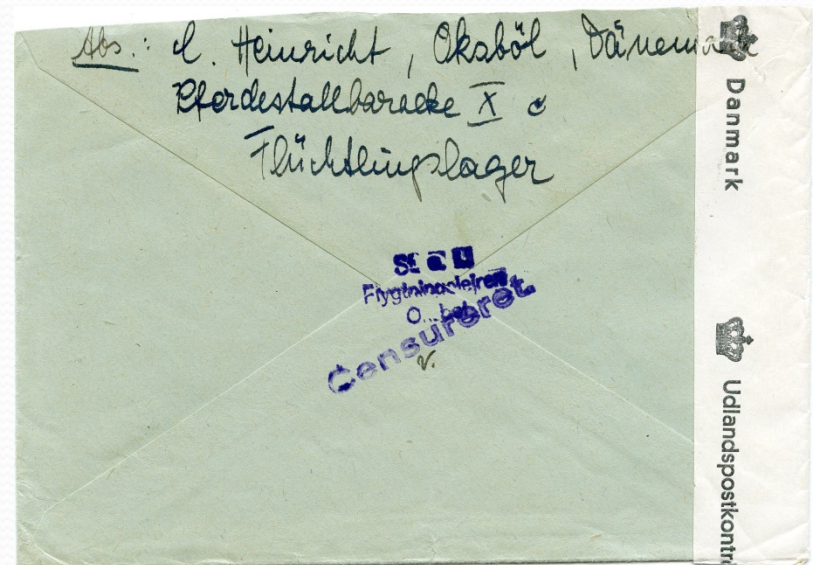 Abs.: C. Heinricht, Oksböl, Dänemark
Pferdestallbaracke X c
Flüchtlingslager
Flygtningelejren
Censureret.
v.
Danmark
Udlandspostkontr